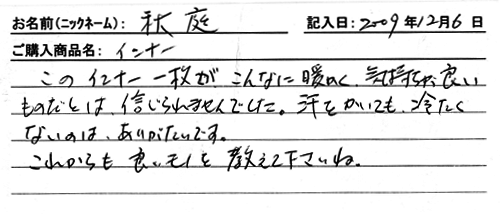 お名前(ニックネーム): 秋庭 記入日: 2009年12月6日
ご購入商品名: インナー
このインナー一枚が、こんなに暖かく、気持ちが良い
ものだとは、信じられませんでした。汗をかいても、冷たく
ないのは、ありがたいです。
これからも良いモノを教えて下さいね。